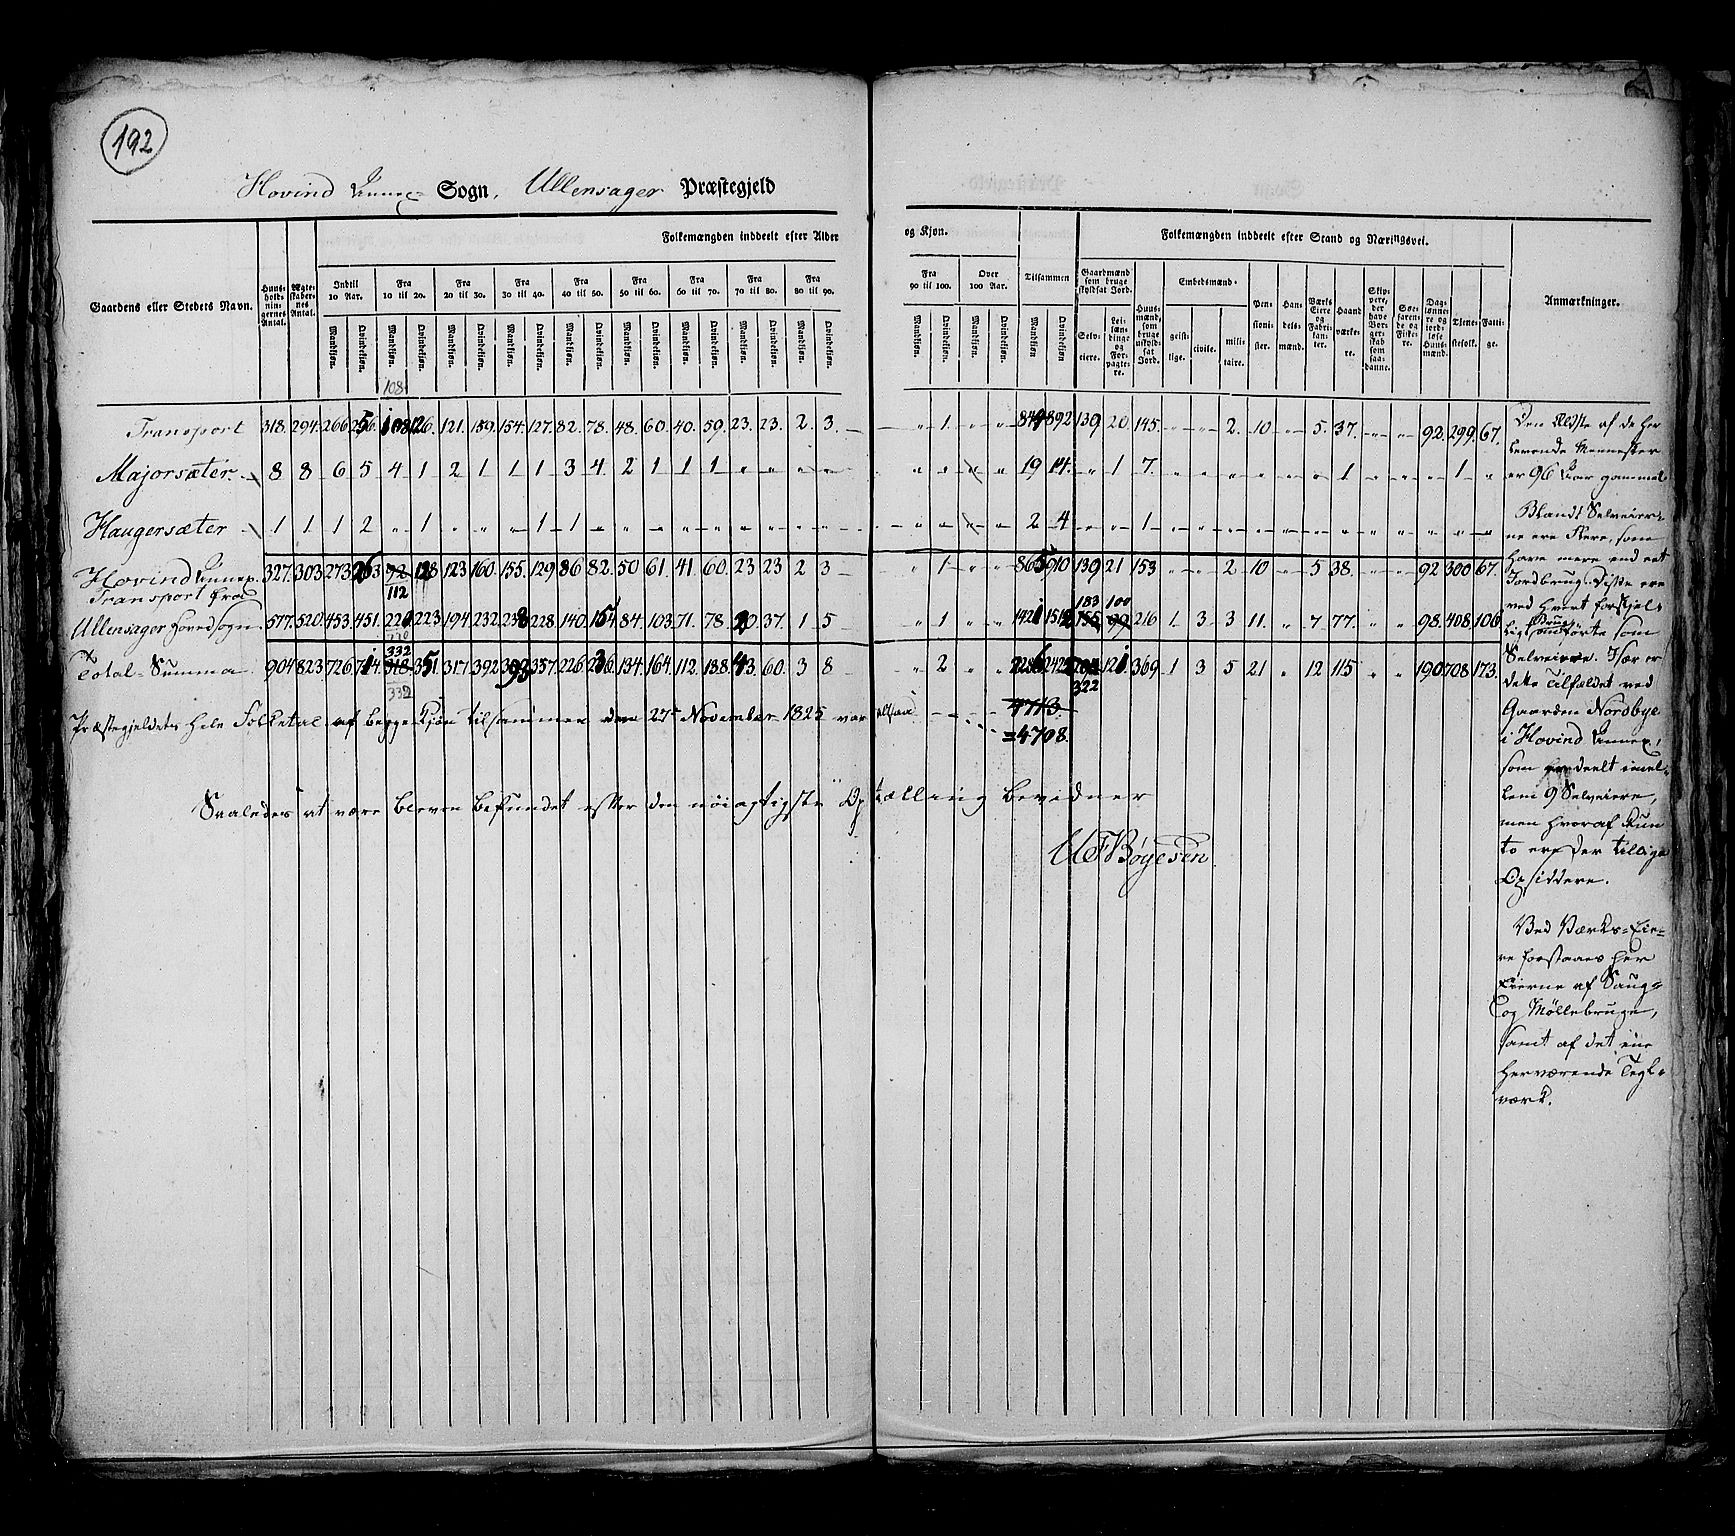 192
Hovind Annex Sogn, Ullensager Præstegjeld
Gaardens eller Stedets Navn.
Huus-holdningernes Antal.
Ægteskabernes Antal.
Folkemængden inddeelt efter Alder og Kjøn.
Indtil 10 Aar. Fra 10 til 20. Fra 20 til 30. Fra 30 til 40. Fra 40 til 50. Fra 50 til 60. Fra 60 til 70. Fra 70 til 80. Fra 80 til 90. Fra 90 til 100. Over 100 Aar. Tilsammen
Mandkjøn. Qvindekjøn.
Folkemængden inddeelt efter Stand og Næringsvei.
Gaardmænd som bruge skyldsat Jord.
Selveiere. Leilændinge og Forpagtere.
Huusmænd, som bruge uskyldsat Jord.
Embedsmænd
geistlige. civile. militaire.
Pensionister. Handelsmænd. Værks Eiere og Fabrikanter. Haandværkere. Skippere, der have Borgerskab som saadanne. Søefarende og Fiskere. Daglønnere og jordløse Huusmænd. Tjenestefolk. Fattige.
Anmærkninger.
108
Transport 318. 294. 266. 256. 108. 126. 121. 159. 154. 127. 82. 78. 48. 60. 40. 59. 23. 23. 2. 3. – " 1. " " 844 892 139 20. 145. " " 2. 10 " 5. 37. " " 92. 299. 67.
Majorsæter. 8 8 6 5 4 1 2 1 1 1 3 4. 2 1 1 1 " " " " 19 14. " 1 7. " " " " " " 1 " " " 1 "
Haugersæter 1 1 1 2 " 1 " " " 1 1 " " " " " " " " " 2 4 " " 1 " " " " " " " " " " " "
Hovind Annex. 327. 303 273 263 112 128 123 160. 155. 129 86 82. 50 61. 41 60. 23 23 2 3 – " 1 " " 865 910 139 21 153 " " 2 10 " 5 38. " " 92 300 67.
Transport fra
Ullensager Hovedsogn 577. 520. 453. 451. 220 223 194 232. 238 228 140. 154 84. 103. 71. 78. 20 37. 1 5 " 1 " " 1421 1512 183 100 216 1 3 3 11. " 7 77. " " 98. 408 106
Total-Summa 904 823 726. 714. 332 351 317. 392 393 357. 226 236. 134 164. 112. 138. 43. 60. 3 8 " 2 " " 2286 2422 322 121 369 1 3 5 21 " 12 115 " " 190 708 173.
Præstegjeldets hele Folketal af begge Kjøn tilsammen den 27de November 1825 var altsaa 4713.
=4708.
Saaledes at være bleven befundet efter den nøiagtigste Optælling bevidner
U F Bøyesen.
Den Ældste af de her
levende Mennesker
er 96 Aar gammel
Blandt Selveier-
ne ere Flere, som
have mere end eet
Jordbrug. Disse ere
ved hvert forskjel-
ligt Brug anførte som
Selveiere. Især er
dette Tilfældet ved
Gaarden Nordbye
i Hovind Annex,
som er deelt imel-
lem 9 Selveiere,
men hvoraf kun
to ere der tillige
Opsiddere.
Ved Værks-Eie-
re forstaaes her
Eierne af Saug-
og Møllebruge,
samt af det ene
herværende Tegl-
værk.